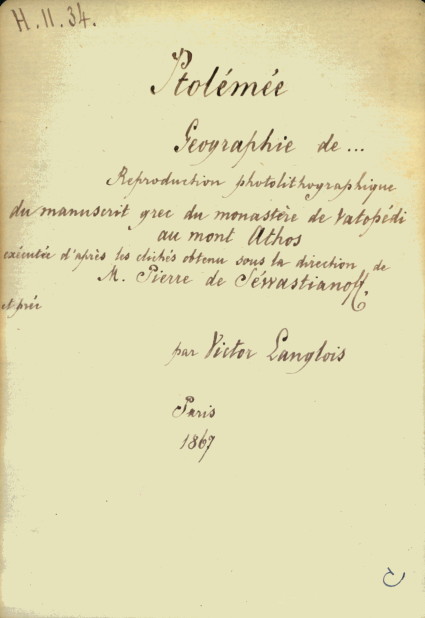 H.11.34.
Ptolémée
Géographie de ...
Reproduction photolithographique
du manuscrit grec du monastère de Vatopédi
au mont Athos
exécutée d'après les clichés obtenu sous la direction de
M. Pierre de Séwastianoff,
et préc
par Victor Langlois
Paris
1867